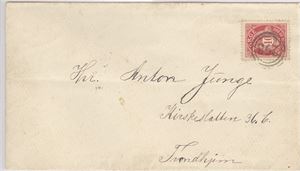 Hr. Anton Junge
Kirkesletten 36. C.
Trondhjem